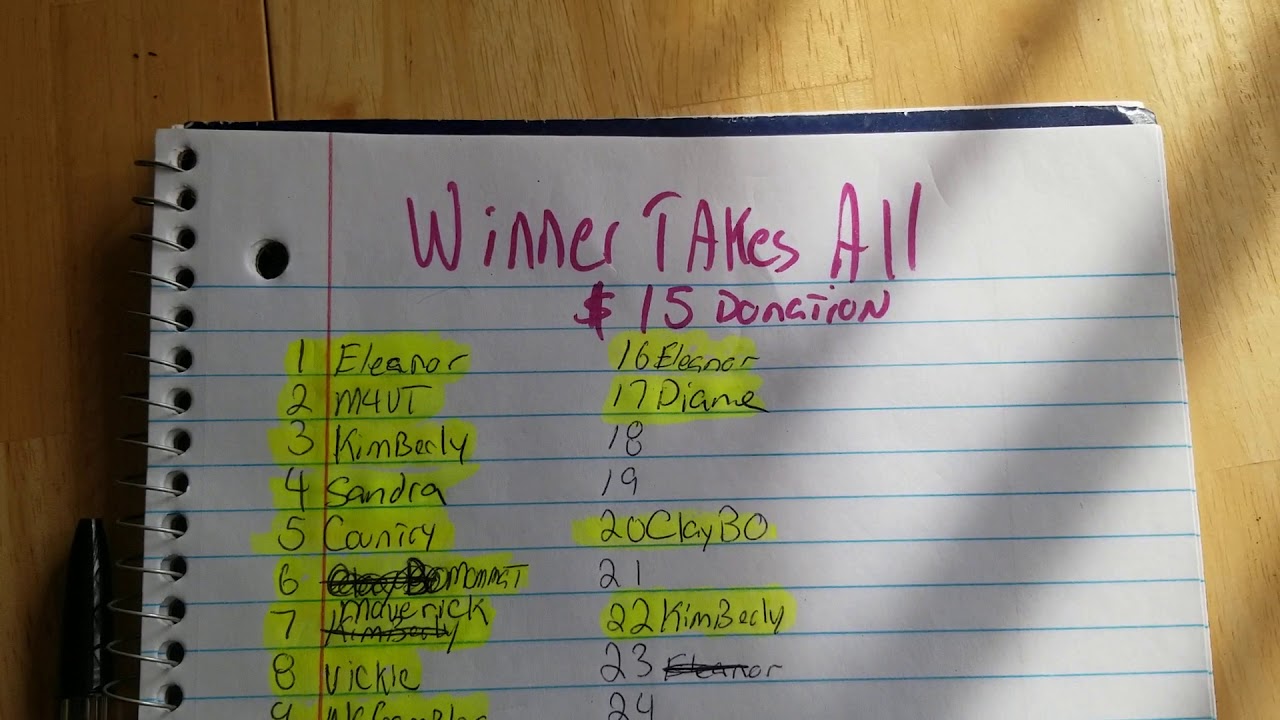 Winner TAKes All
$15 Donation
1 Eleanor 16 Eleanor
2 M4UT 17 Diane
3 KimBerly 18
4 Sandra 19
5 Country 20 ClayBO
6 MomMaT 21
7 maverick KimBerly 22 KimBerly
8 Vickie 23 Eleanor
9 24